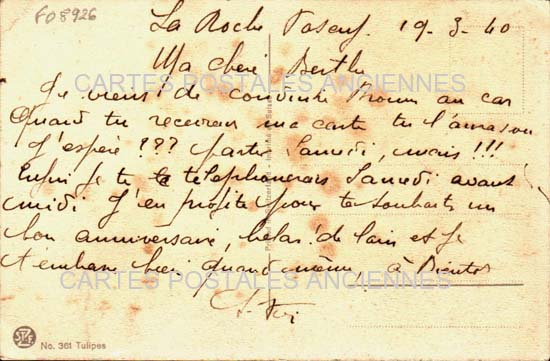 F08926
La Roche Posay, 19-3-40
Ma chère Berthe
CARTES POSTALES ANCIENNES
Je viens de conduire au car
Quand tu recevras ma carte tu
J'espère ??? partir Samedi, mais !!!
Enfin je te téléphonerais Samedi avant
midi J'en profite pour te souhaiter un
bon anniversaire, hélas! de loin et je
t'embrasse bien quand même, à Bientot
CARTES POSTALES ANCIENNES
No. 361 Tulipes